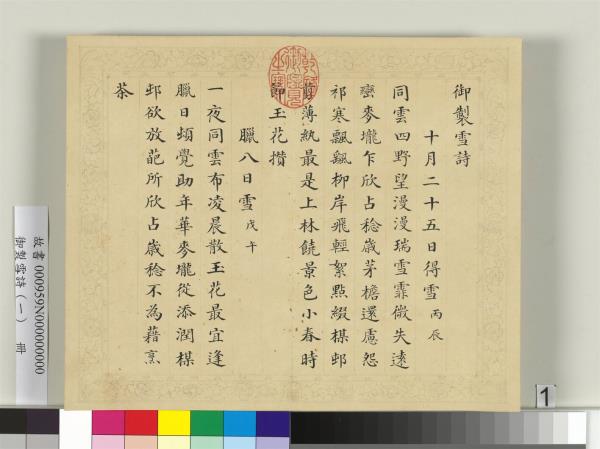 御製雪詩
十月二十五日得雪 丙辰
同雲四野望漫漫瑞雪霏微失遠
巒麥壠乍欣占稔歲茅檐還慮怨
祁寒飄颻柳岸飛輕絮點綴楳邨
薄紈最是上林饒景色小春時
節玉花攢
臘八日雪 戊午
一夜同雲布凌晨散玉花最宜逢
臘日頓覺助年華麥壠從添潤楳
邨欲放葩所欣占歲稔不為藉烹
茶
乾隆御覽之寶
故書 000959N000000000
御製雪詩(一) 冊
1